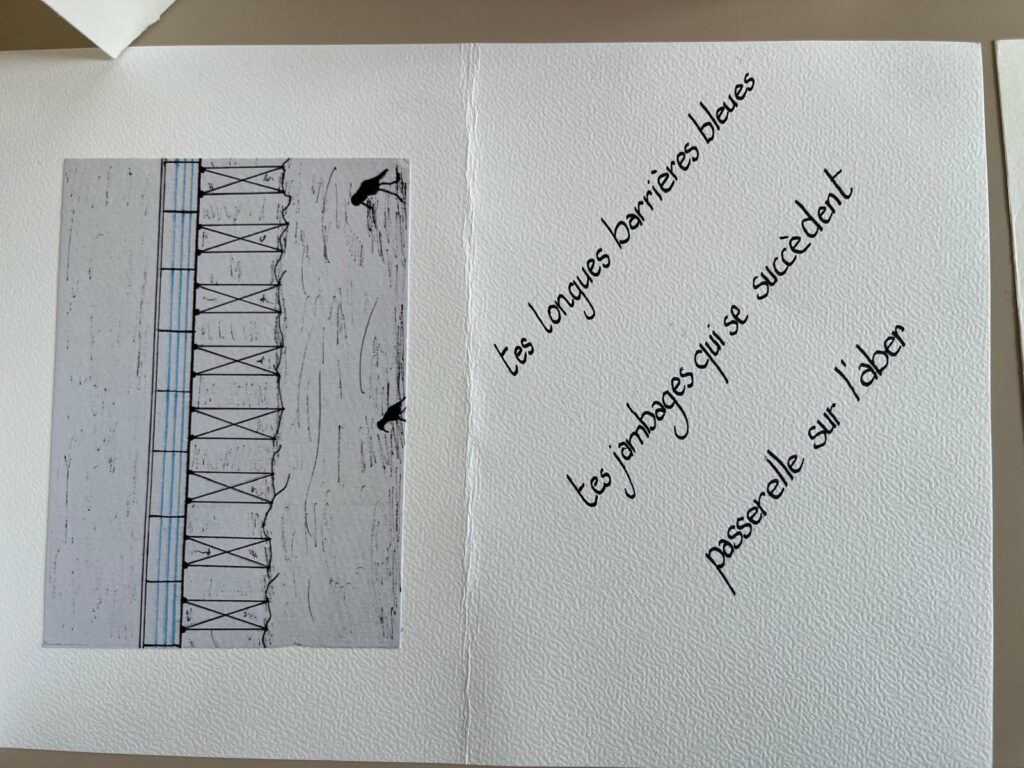 tes longues barrières bleues
tes jambages qui se succèdent
passerelle sur l'aber